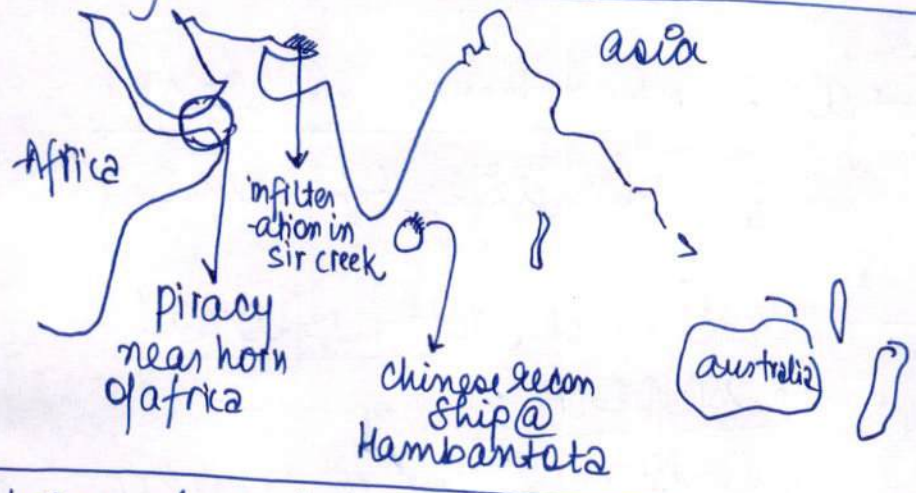 asia
Africa
infilter
-ation in
sir creek
Piracy
near horn
of africa
chinese recon
ship @
Hambantota
australia